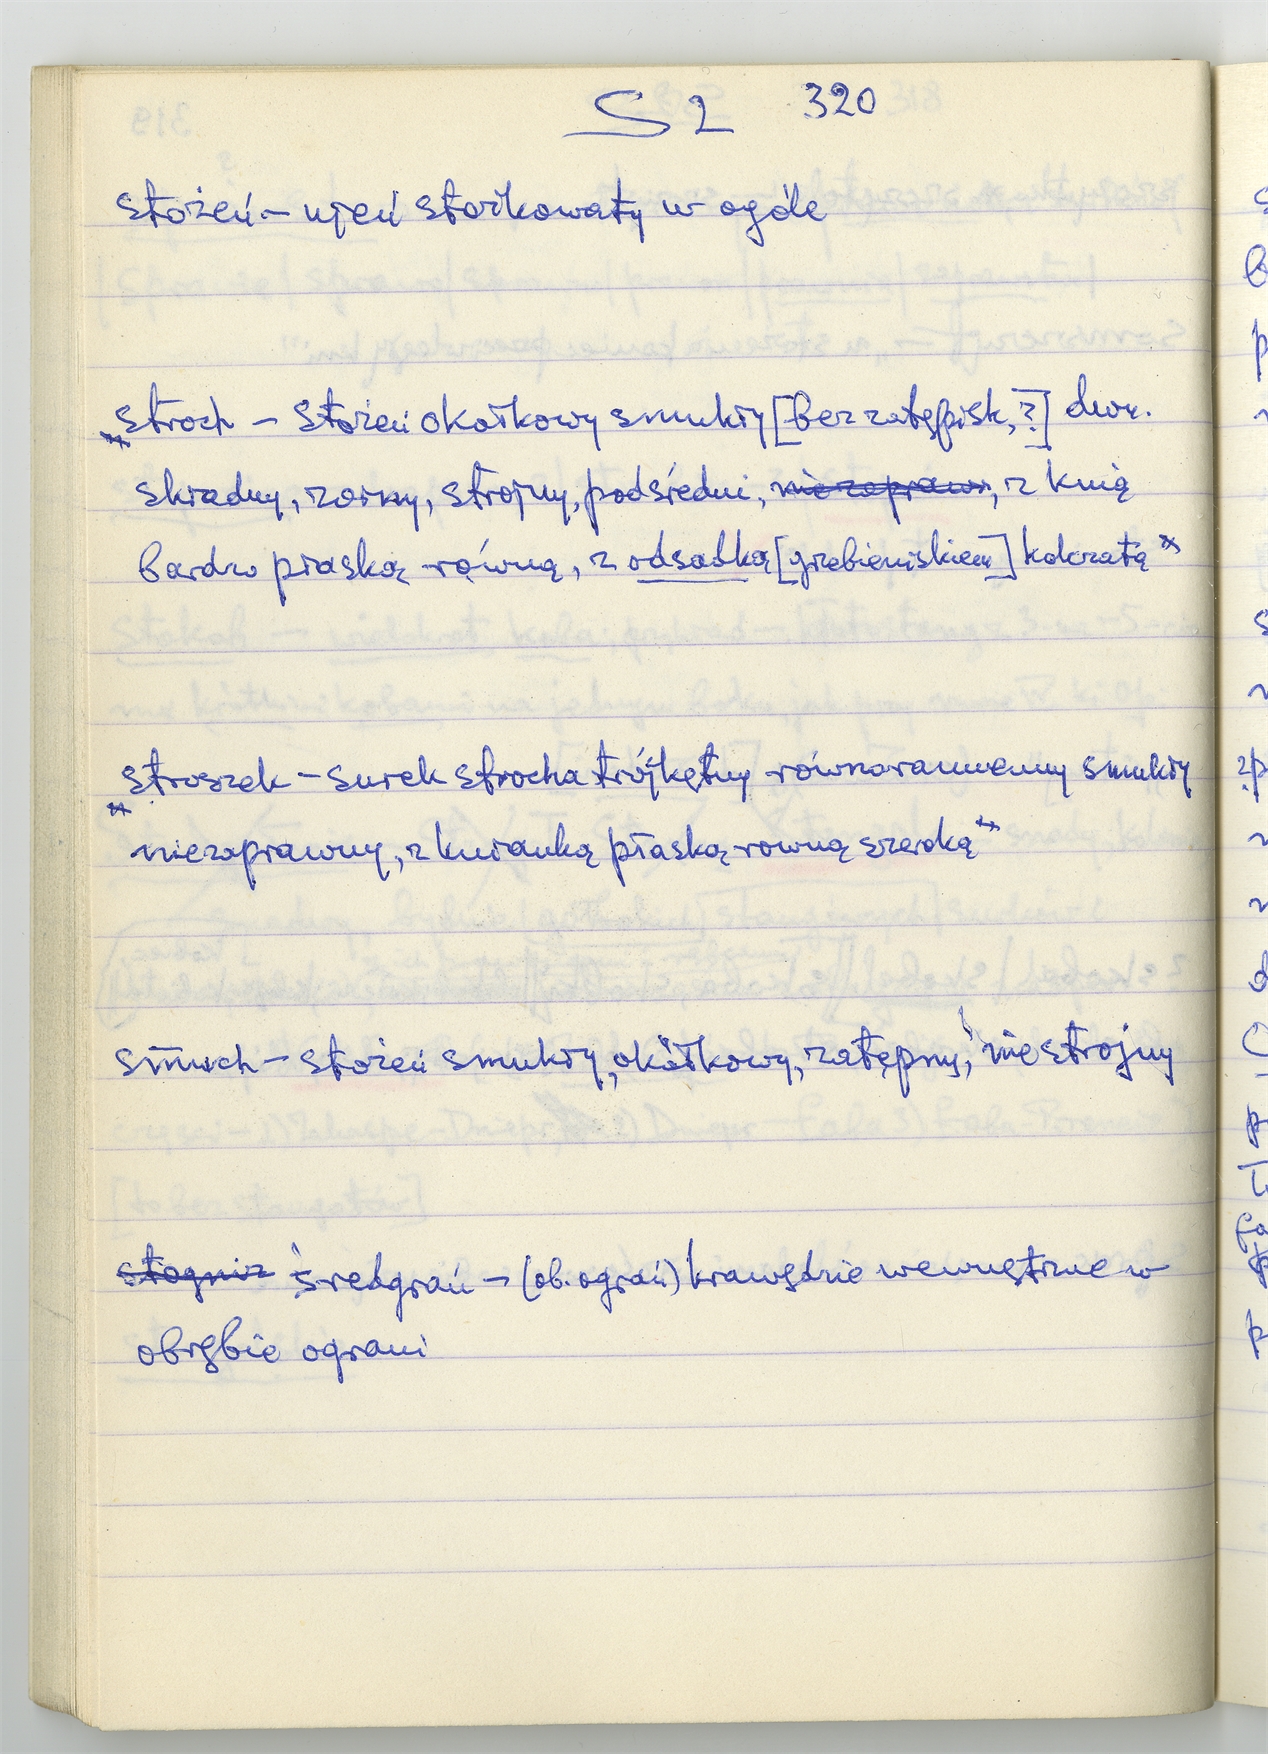 S2 320
stożeń – upeń stożkowaty w ogóle
„stroch – stożeń okółkowy smukły [bez zatępisk, ?] dwu.
składny, zorny, strojny, podśredni, niezapraw, z knią
bardzo płaską równą, z odsadką [grzebieniskiem] kolczatą"
„stroszek – surek strocha trójkętny równoramienny smukły
niezaprawny, z knianką płaską równą szeroką"
smuch – stożeń smukły, okółkowy, zatępny, niestrojny
stogniz średgrań – (ob. ograń) krawędzie wewnętrzne w
obrębie ograni